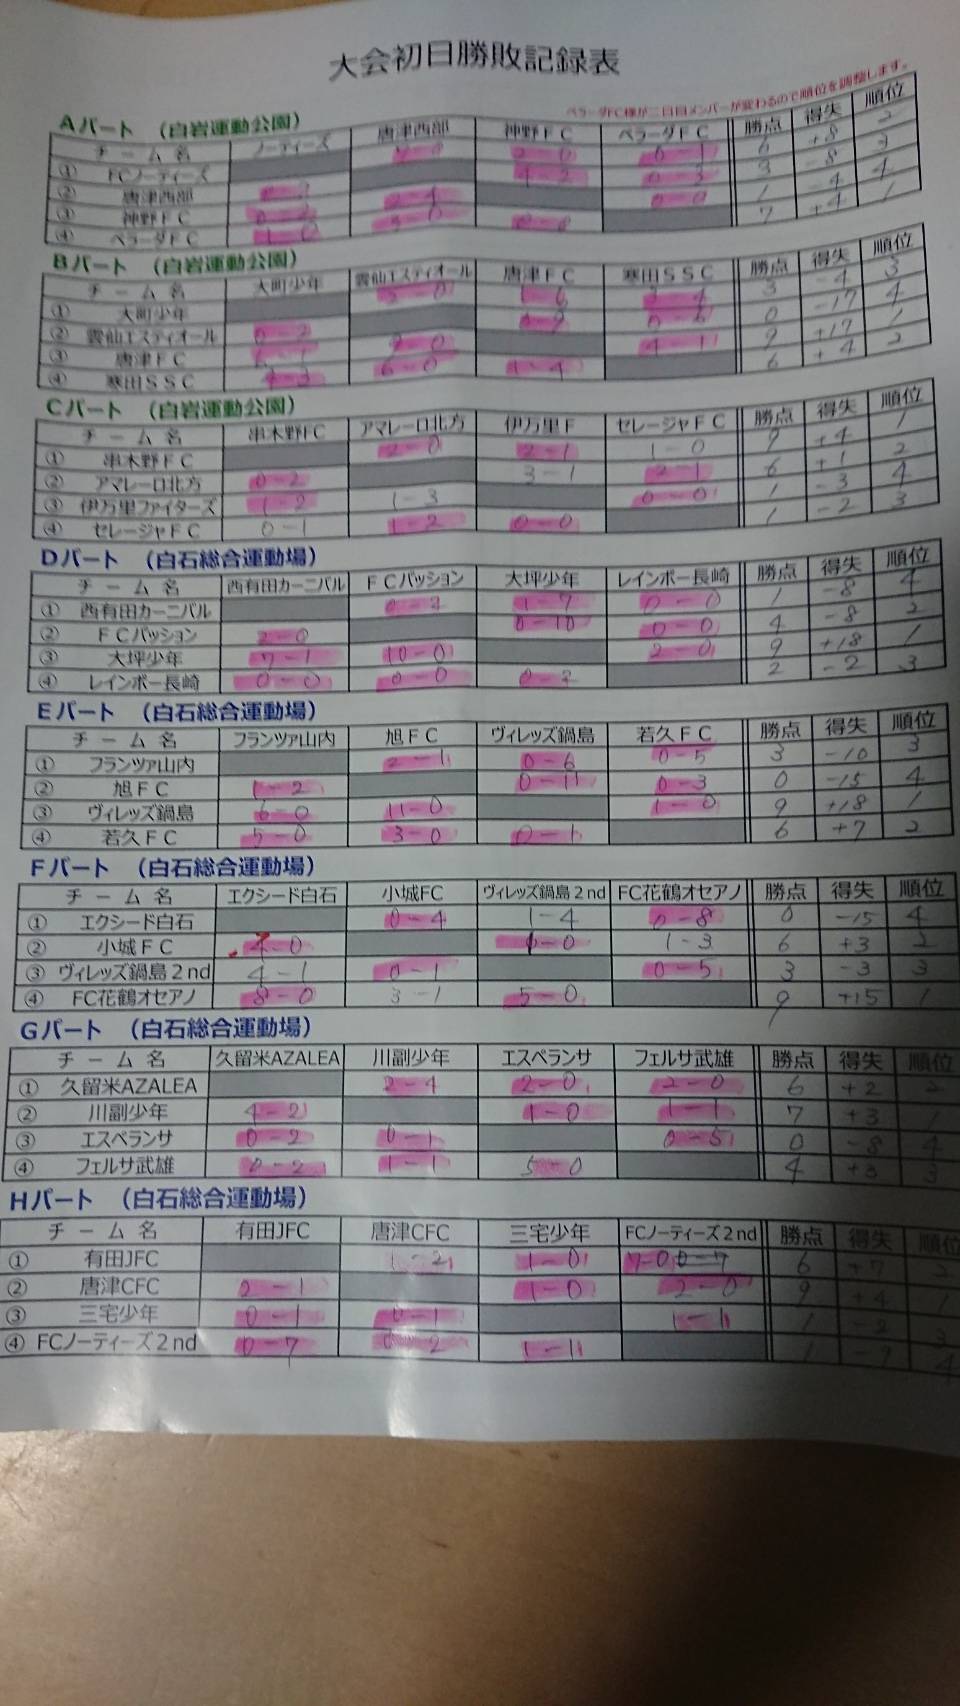 大会初日勝敗記録表
ペラーダFC様が二日目メンバーが変わるので順位を調整します。
Aパート （白岩運動公園）
チーム名 ノーティーズ 唐津西部 神野FC ペラーダFC 勝点 得失 順位
① FCノーティーズ 6 +8 2
② 唐津西部 4-2 0-3 3 -8 3
③ 神野FC 2-4 0-0 1 -4 4
④ ペラーダFC 1-0 3-0 0-0 7 +4 1
Bパート （白岩運動公園）
チーム名 大町少年 雲仙エスティオール 唐津FC 寒田SSC 勝点 得失 順位
① 大町少年 1-6 3-4 3 -4 3
② 雲仙エスティオール 0-2 0-9 0-6 0 -17 4
③ 唐津FC 6-1 9-0 4-1 9 +17 1
④ 寒田SSC 4-3 6-0 1-4 6 +4 2
Cパート （白岩運動公園）
チーム名 串木野FC アマレーロ北方 伊万里F セレージャFC 勝点 得失 順位
① 串木野FC 2-0 2-1 1-0 9 +4 1
② アマレーロ北方 0-2 3-1 2-1 6 +1 2
③ 伊万里ファイターズ 1-2 1-3 0-0 1 -3 4
④ セレージャFC 0-1 1-2 0-0 1 -2 3
Dパート （白石総合運動場）
チーム名 西有田カーニバル FCパッション 大坪少年 レインボー長崎 勝点 得失 順位
① 西有田カーニバル 0-2 1-7 0-0 1 -8 4
② FCパッション 2-0 0-10 0-0 4 -8 2
③ 大坪少年 7-1 10-0 2-0 9 +18 1
④ レインボー長崎 0-0 0-0 0-2 2 -2 3
Eパート （白石総合運動場）
チーム名 フランツァ山内 旭FC ヴィレッズ鍋島 若久FC 勝点 得失 順位
① フランツァ山内 2-1 0-6 0-5 3 -10 3
② 旭FC 1-2 0-11 0-3 0 -15 4
③ ヴィレッズ鍋島 6-0 11-0 1-0 9 +18 1
④ 若久FC 5-0 3-0 0-1 6 +7 2
Fパート （白石総合運動場）
チーム名 エクシード白石 小城FC ヴィレッズ鍋島2nd FC花鶴オセアノ 勝点 得失 順位
① エクシード白石 0-4 1-4 0-8 0 -15 4
② 小城FC 4-0 1-0 1-3 6 +3 2
③ ヴィレッズ鍋島2nd 4-1 0-1 0-5 3 -3 3
④ FC花鶴オセアノ 8-0 3-1 5-0 9 +15 1
Gパート （白石総合運動場）
チーム名 久留米AZALEA 川副少年 エスペランサ フェルサ武雄 勝点 得失 順位
① 久留米AZALEA 2-4 2-0 2-0 6 +2 2
② 川副少年 4-2 1-0 1-1 7 +3 1
③ エスペランサ 0-2 0-1 0-5 0 -8 4
④ フェルサ武雄 0-2 1-1 5-0 4 +3 3
Hパート （白石総合運動場）
チーム名 有田JFC 唐津CFC 三宅少年 FCノーティーズ2nd 勝点 得失 順位
① 有田JFC 1-2 1-0 7-0 0-7 6 +7 2
② 唐津CFC 2-1 1-0 2-0 9 +4 1
③ 三宅少年 0-1 0-1 1-1 1 -2 3
④ FCノーティーズ2nd 0-7 0-2 1-1 1 -9 4